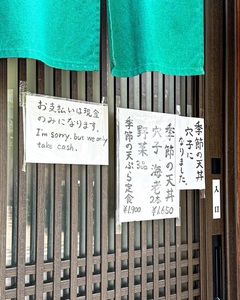 お支払いは現金
のみになります。
I'm sorry. but we only
take cash.
季節の天丼
穴子に
なりました。
季節の天丼
穴子 海老2本
野菜3品 ¥1,650
季節の天ぷら定食
¥1,900
入口